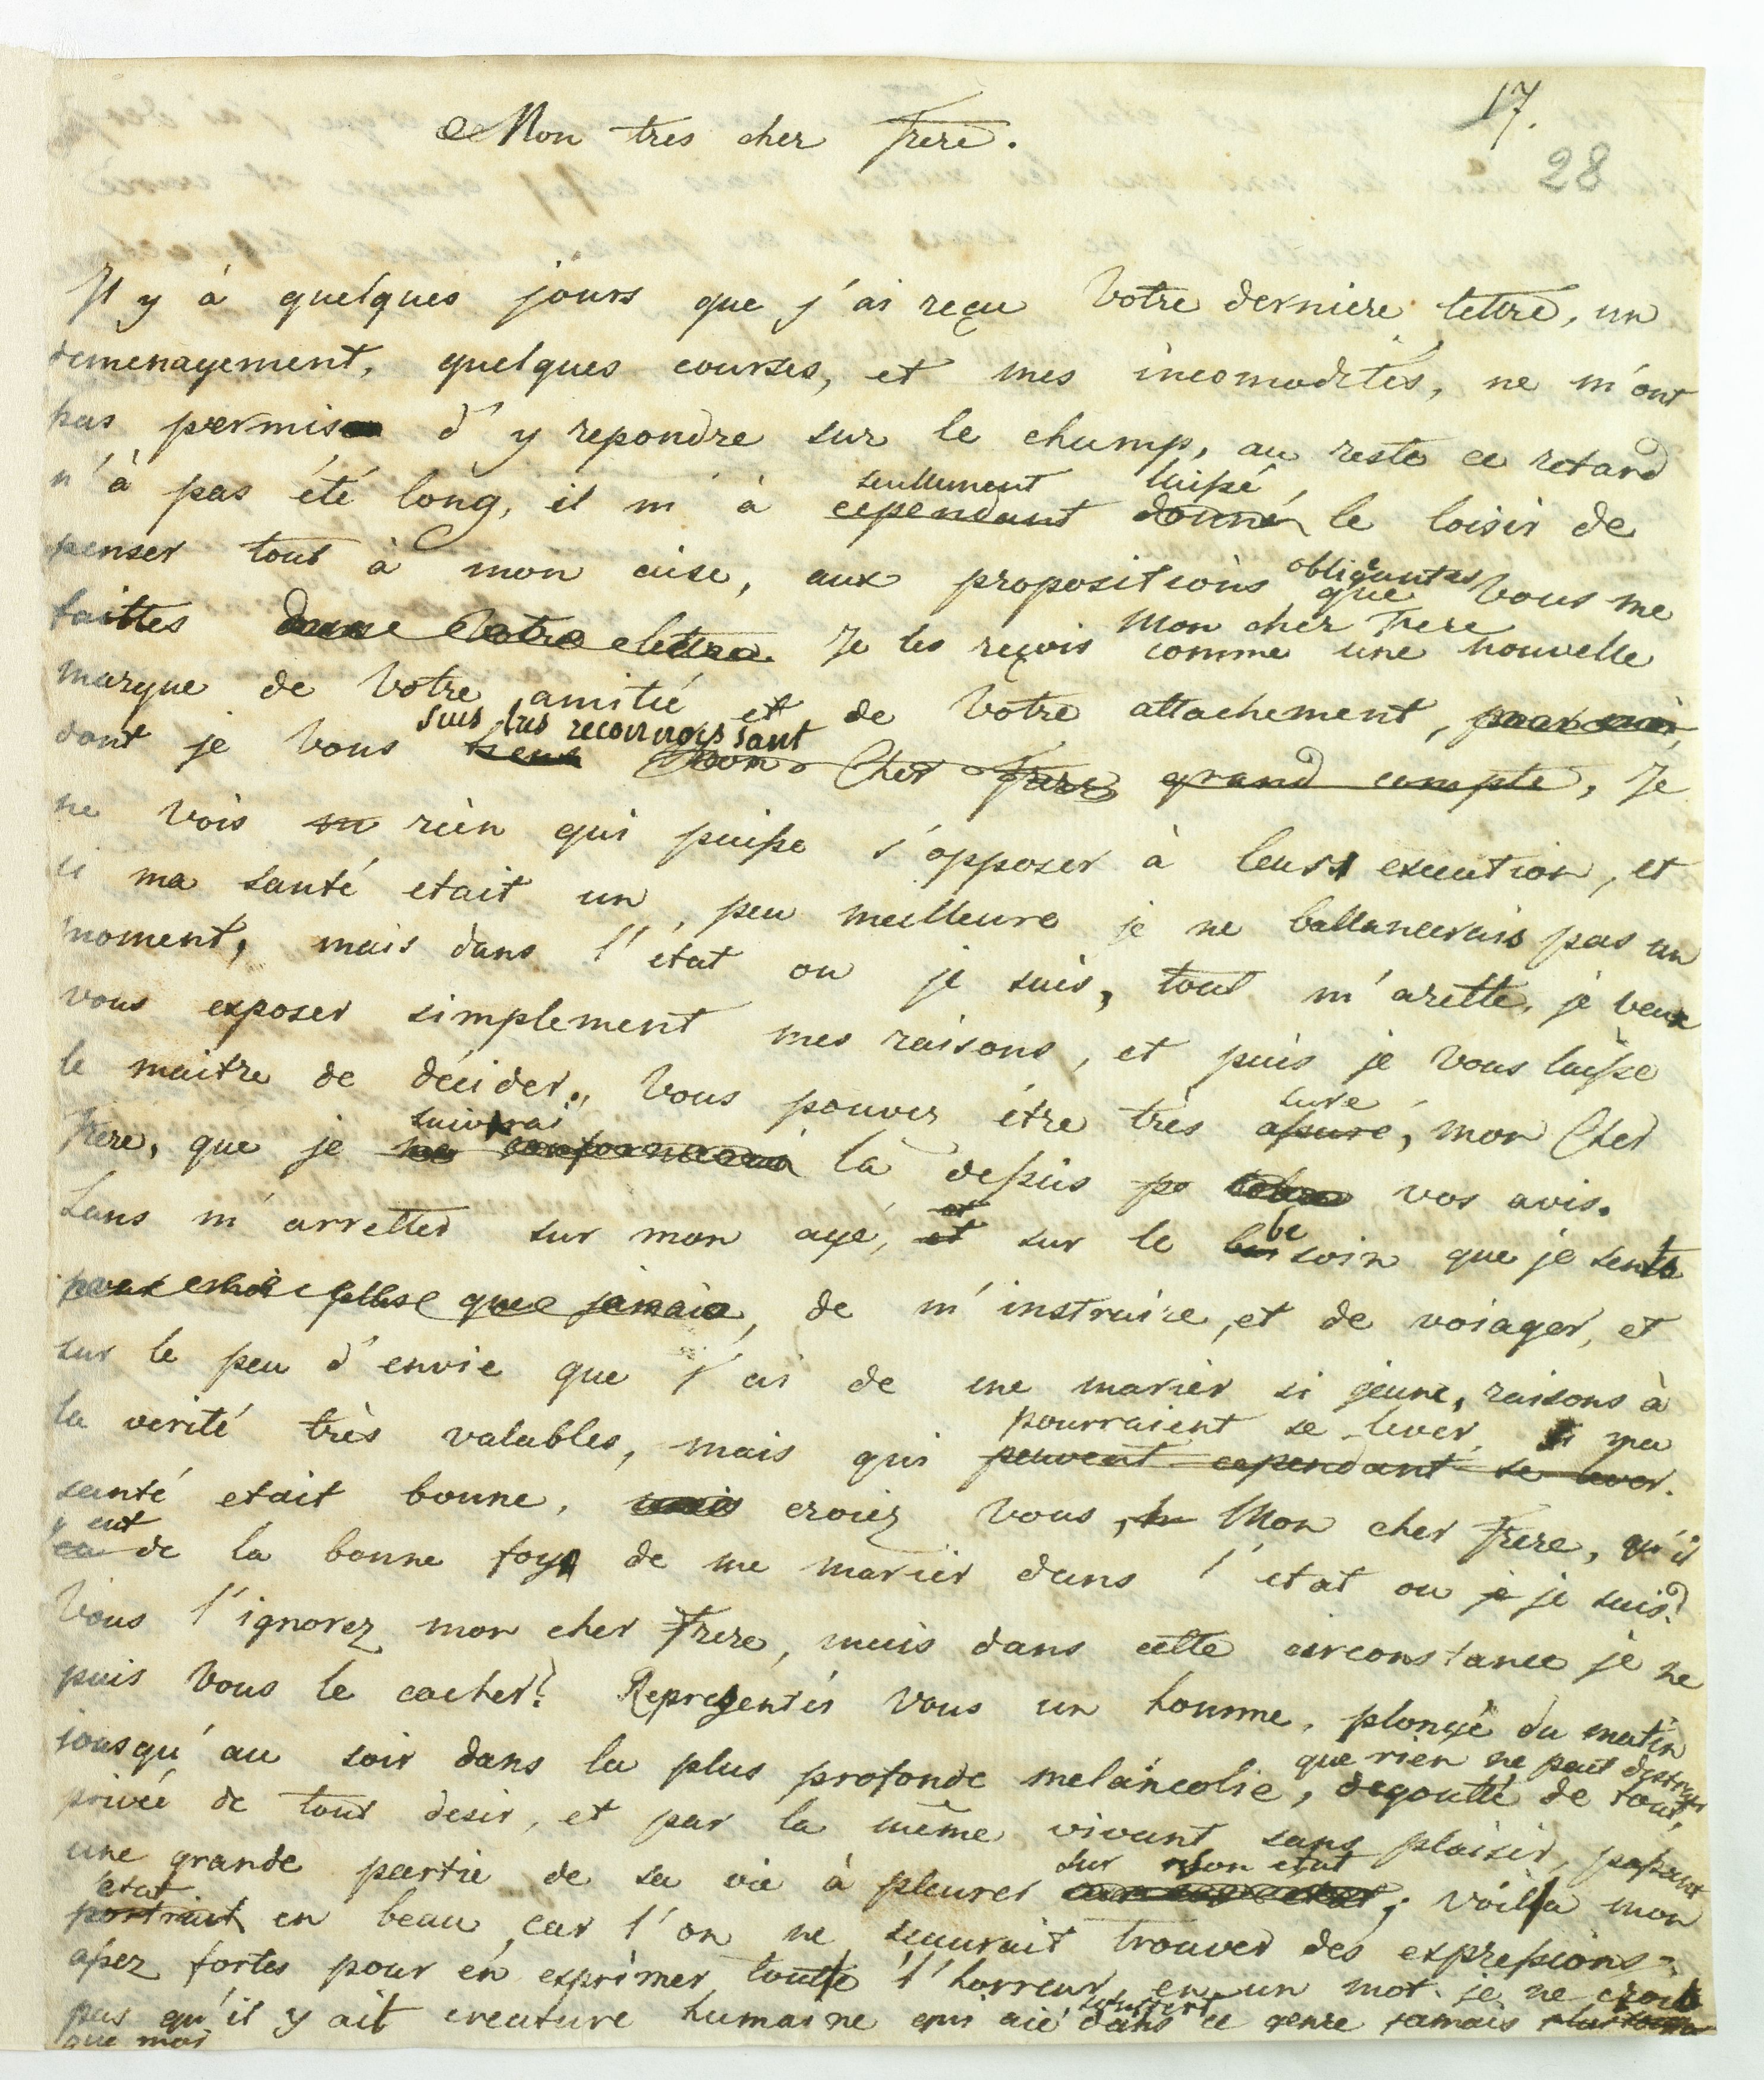 17.
28
Mon tres cher Frere.
Il y à quelques jours que j'ai reçu Votre derniere lettre, un
demenagement, quelques courses, et mes incomodités, ne m'ont
pas permis d'y repondre sur le champ, au reste ce retard
seullement laissé
n'à pas été long, il m'à cependant donné le loisir de
penser tout à mon aise, aux propositions obligantes que Vous me
faittes dans Votre lettre. Je les reçois Mon cher Frere comme une nouvelle
marque de Votre amitié et de Votre attachement, pour moi,
suis très reconnoissant
dont je Vous tiens Mon Cher Frere grand compte, Je
ne vois rien qui puisse s'opposer à leurs execution, et
si ma santé etait un peu meilleure je ne ballancerais pas un
moment, mais dans l'état ou je suis, tout m'arette, je veux
vous exposer simplement mes raisons, et puis je Vous laisse
le maitre de décider. Vous pouvez étre très assuré, mon Cher
sure
suivrai
Frere, que je me conformerai là dessus vos avis.
Sans m'arretter sur mon age, et sur le besoin que je sents
pour moi plus que jamais, de m'instruire, et de voiager, et
sur le peu d'envie que j'ai de me marier si jeune, raisons à
pourraient se lever si ma
la verité très valables, mais qui peuvent cependant se lever.
santé etait bonne, mais croiez Vous, Mon cher Frere, qu'il
y eut
ea de la bonne foy de me marier dans l'etat ou je je suis?
Vous l'ignorez mon cher Frere, mais dans cette circonstance je ne
puis Vous le cacher! Representés Vous un homme, plongé du matin
jousqu'au soir dans la plus profonde melancolie, que rien ne peut distraire, degoutté de tout,
privé de tout desir, et par la même vivant sans plaisir, passant
sur son etat
une grande partie de sa vie à pleurer sur son etat; Voilla mon
etat
portrait en beau, car l'on ne sauroit trouver des expressions
assez fortes pour en exprimer toutte l'horreur, en un mot je ne crois
pas qu'il y ait creature humaine qui aie souffert dans ce genre jamais plus
que moi